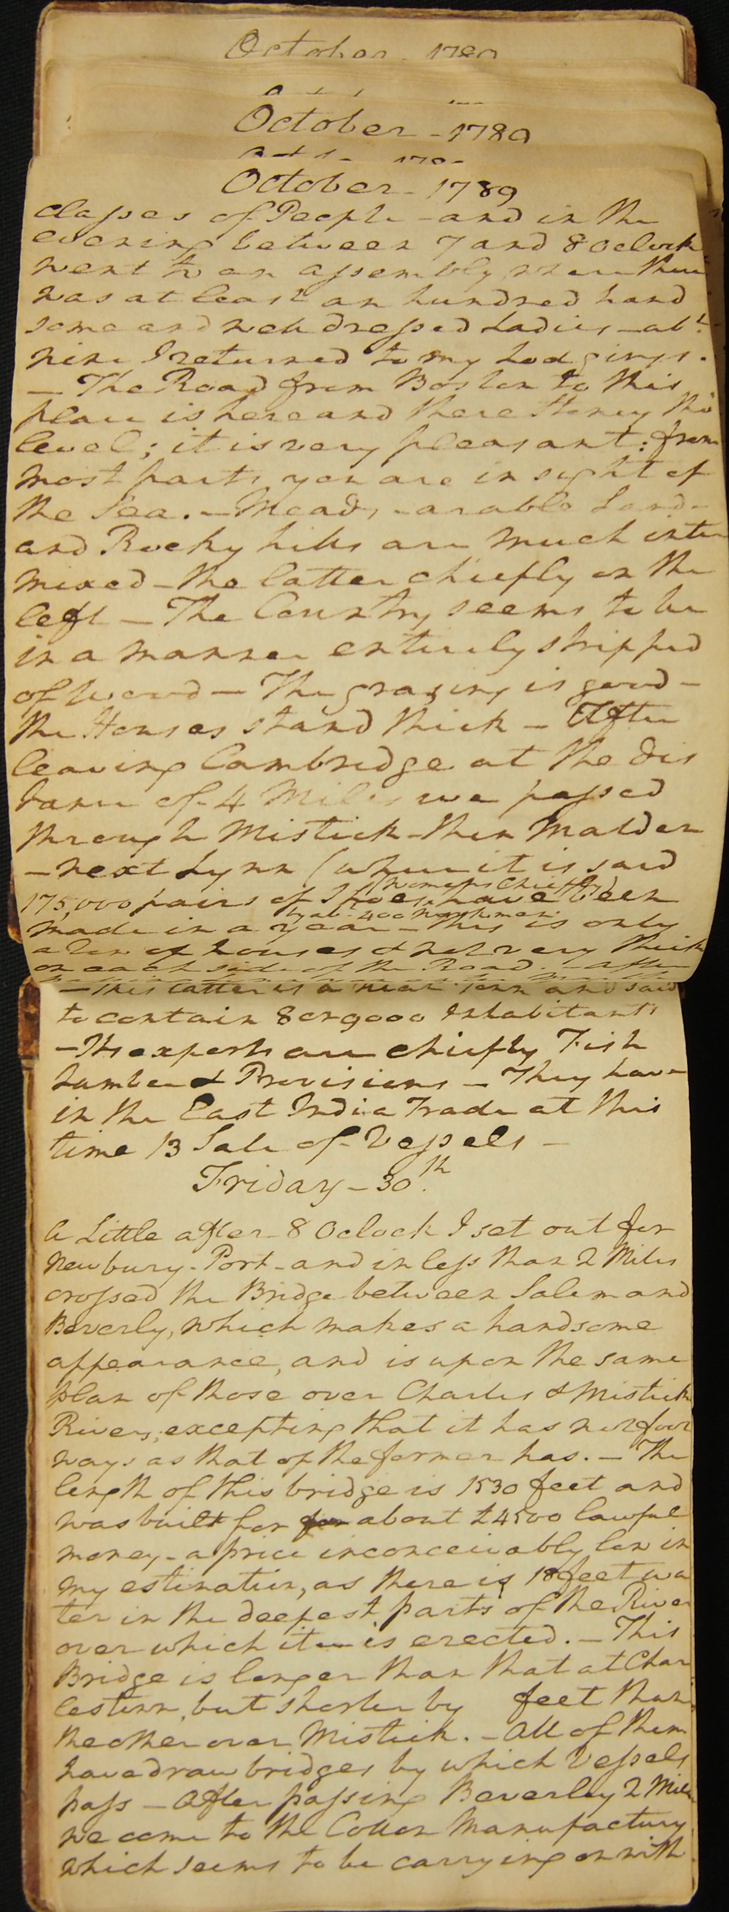 October 1789
October - 1789
October - 1789
classes of People - and in the
evening between 7 and 8 Oclock
went to an assembly, where there
was at least an hundred hand
some and well dressed Ladies - abt.
nine I returned to my Lodgings.
- The Road from Boston to this
place is here and there Stoney tho'
level; it is very pleasant: from
most parts you are in sight of
the Sea. - Meads, - arable Land -
and Rocky hills are much inter
mixed - the latter chiefly on the
left - The Country seems to be
in a manner entirely stripped
of wood - The grazing is good -
the Houses stand thick - After
leaving Cambridge at the dis
tance of 4 Miles we passed
through Mistick - then Malden
- next Lynn (where it is said
175,000 pairs of Shoes (womens chiefly) have been
made in a year by abt. 400 workmen - This is only
a row of houses & not very thick
on each side of the Road. - After
- this latter is a neat Town and said
to contain 8 or 9000 Inhabitants
- Its exports are chiefly Fish
Lumber & Provisions - They have
in the East India Trade at this
time 13 Sale of Vessels -
Friday - 30th.
A Little after 8 Oclock I set out for
Newbury-Port - and in less than 2 Miles
crossed the Bridge between Salem and
Beverly, which makes a handsome
appearance, and is upon the same
plan of those over Charles & Mistick
Rivers; excepting that it has not foot
ways as that of the former has. - The
length of this bridge is 1530 feet and
was built for for about £4500 lawful
money - a price inconceivably low in
my estimation, as there is 18 feet wa
ter in the deepest parts of the River
over which it is erected. - This
Bridge is longer than that at Char
lestown, but shorter by feet than
the other over Mistick. - All of them
have draw bridges by which Vessels
pass - After passing Beverley 2 Miles
we come to the Cotton Manufactury
which seems to be carrying on with